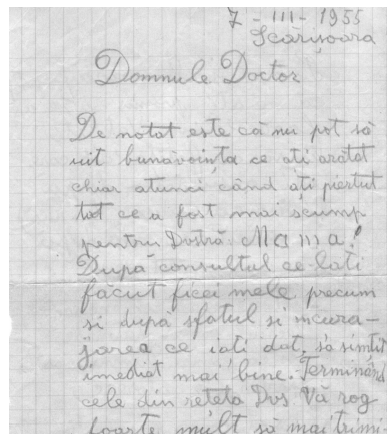 7 - III - 1955
Scărișoara
Domnule Doctor
De notat este că nu pot să
uit bunăvoința ce ați arătat
chiar atunci când ați pierdut
tot ce a fost mai scump
pentru Dvstră. Mama!
După consultul ce lati
făcut ficei mele precum
si dupa sfatul si incura-
jarea ce iati dat, sa simtit
imediat mai bine. Terminând
cele din reteta Dvs. Vă rog
foarte mult să mai trimi